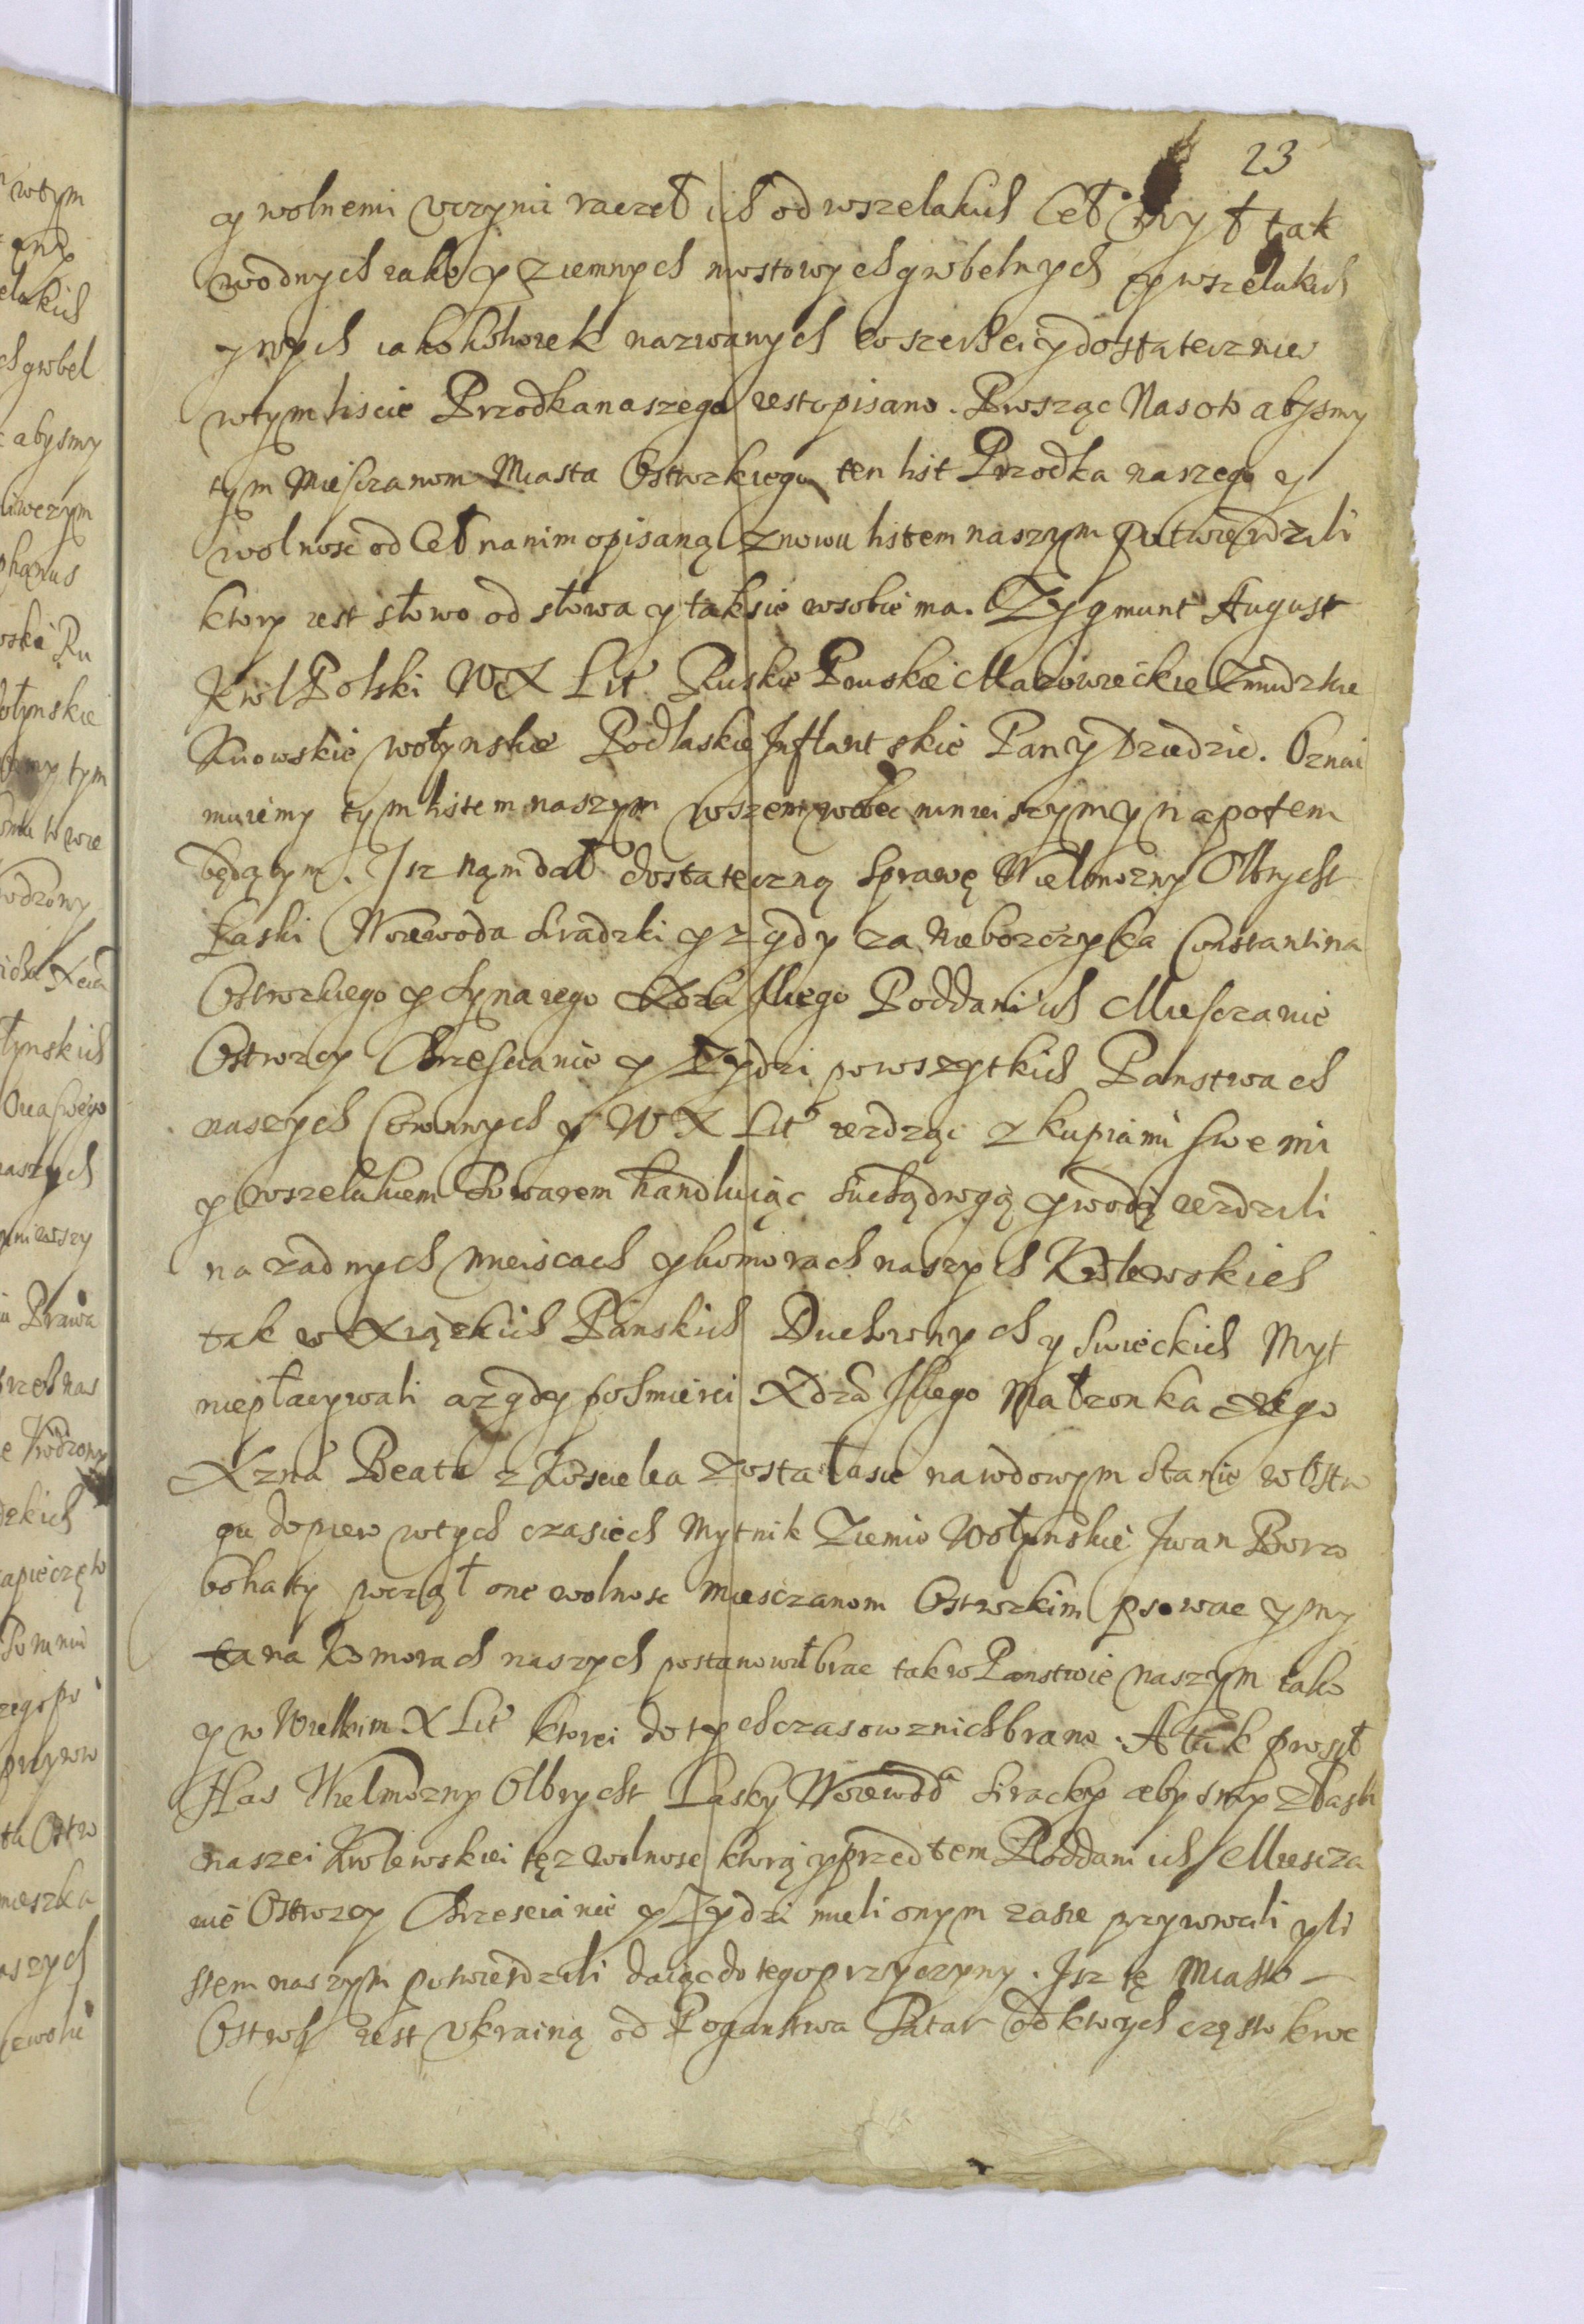 23
y wolnemi vczynic raczeł ich od wszelakich Ceł Myt tak
wodnych iako y Ziemnych mostowych grobelnych y wszelakich
ynych iakokolwiek nazwanych co szerzei y dostatecznie
wtym liscie Przodka naszego iest opisano. Prosząc Nas oto abysmy
tym Miesczanom Miasta Ostrozkiego ten list Przodka naszego y
wolnosc od Ceł na nim opisaną znowu listem naszym potwierdzili
ktory iest słowo od słowa y tak sie wsobie ma. Zygmunt August
Krol Polski W X Lit Ruskie Pruskie Mazowieckie Zmudzkie
Kiiowskie wołynskie Podlaskie Jnflantskie Pan y Dziedzic. Oznai
muiemy tym listem naszym wszem wobec ninieiszym y napotem
będącym. Jsz nąm dał dostateczną Sprawę Wielmozny Olbrycht
Łaski Woiewoda Siradzki yz gdy za Nieboszczyka Constantina
Ostrozkiego y Syna iego Xdza Jlliego Poddani ich Miesczanie
Ostrozcy Chrzescianie y Zydzi powszytkich Panstwach
naszych Coronnych y W X Lit iezdząc z kupiami swemi
y wszelakiem Towarem handluiąc suchą drogą y wodą iezdzili
na zadnych mieiscach y komorach naszych Krolewskich
tak w Xiązkich Panskich Duchownych y Swieckich Myt
niepłacywali az gdy posmierci Xdza Jlliego Małzonka iego
Xzna Beata z Koscielca Zostałasie na wdowym Stanie w Ostro
gu dopiero wtych czasiech Mytnik Ziemie Wołynskie Jwan Borzo
bohaty począł one wolnosc Miesczanom Ostrozkim psowac y my
ta na Komorach naszych postanowił brac tak w Panstwie naszym iako
y w Wielkim X Lit ktorei do tych czasow z nich brano. A tak prosił
Nas Wielmozny Olbrycht Lasky Woiewoda Siracky abysmy z łaski
naszei Krolewskiei tęz wolnosc ktorą y przedtem Poddani ich Miescza
nie Ostrozcy Chrzescianie y Zydzi mieli onym zasie przywrocili y li
stem naszym potwierdzili daiąc do tego przyczyny. Jsz tę Miasto
Ostrog iest vkrainą od Poganstwa Tatar od ktorych często kroc